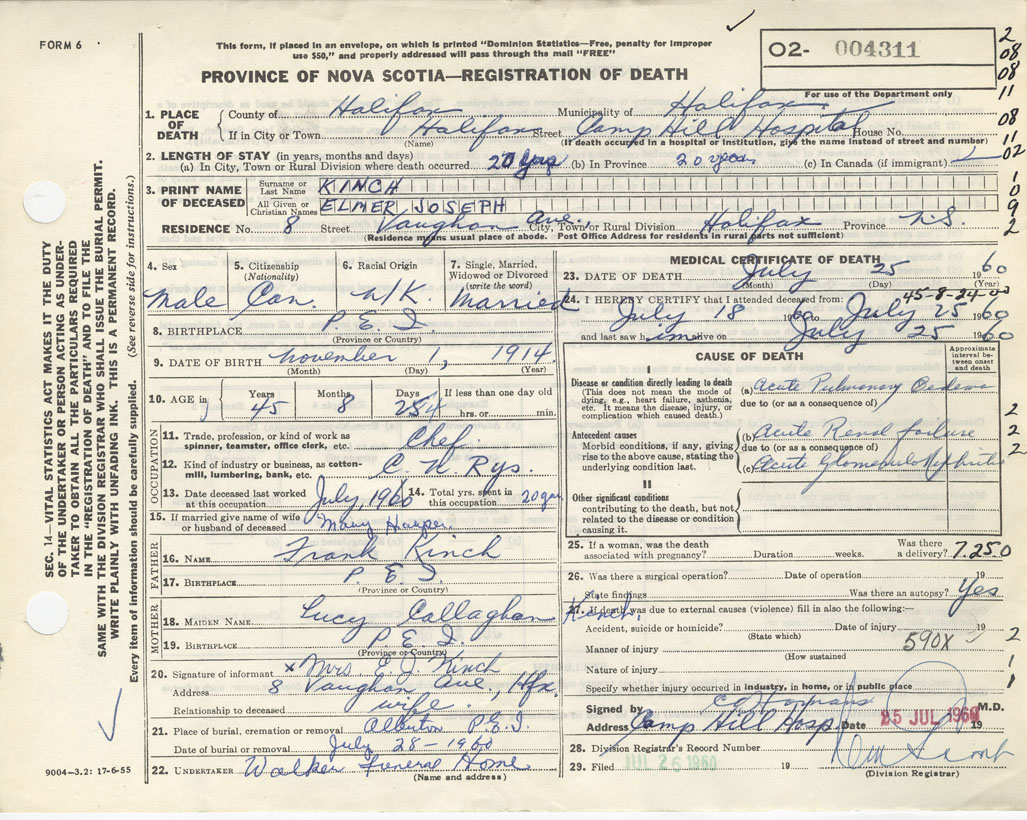 FORM 6
This form, if placed in an envelope, on which is printed "Dominion Statistics—Free, penalty for improper
use $50," and properly addressed will pass through the mail "FREE"
O2- 004311
PROVINCE OF NOVA SCOTIA—REGISTRATION OF DEATH
For use of the Department only
2
08
08
11
08
11
02
1
0
9
2
1. PLACE OF DEATH
County of Halifax Municipality of Halifax
If in City or Town Halifax Street Camp Hill Hospital House No.
(Name) (If death occurred in a hospital or institution, give the name instead of street and number)
2. LENGTH OF STAY (in years, months and days)
(a) In City, Town or Rural Division where death occurred 20 yrs (b) In Province 20 years (c) In Canada (if immigrant)
3. PRINT NAME OF DECEASED
Surname or Last Name KINCH
All Given or Christian Names ELMER JOSEPH
RESIDENCE No. 8 Street Vaughan Ave. City, Town or Rural Division Halifax Province N.S.
(Residence means usual place of abode. Post Office Address for residents in rural parts not sufficient)
SEC. 14—VITAL STATISTICS ACT MAKES IT THE DUTY
OF THE UNDERTAKER OR PERSON ACTING AS UNDER-
TAKER TO OBTAIN ALL THE PARTICULARS REQUIRED
IN THE "REGISTRATION OF DEATH" AND TO FILE THE
SAME WITH THE DIVISION REGISTRAR WHO SHALL ISSUE THE BURIAL PERMIT.
WRITE PLAINLY WITH UNFADING INK. THIS IS A PERMANENT RECORD.
Every item of information should be carefully supplied. (See reverse side for instructions.)
4. Sex Male
5. Citizenship (Nationality) Can.
6. Racial Origin N/K.
7. Single, Married, Widowed or Divorced (write the word) Married
8. BIRTHPLACE P.E.I.
(Province or Country)
9. DATE OF BIRTH November 1, 1914
(Month) (Day) (Year)
10. AGE in Years 45 Months 8 Days 24 If less than one day
hrs. or min.
OCCUPATION
11. Trade, profession, or kind of work as spinner, teamster, office clerk, etc. Chef
12. Kind of industry or business, as cotton-mill, lumbering, bank, etc. C. N. Rys.
13. Date deceased last worked at this occupation July, 1960 14. Total yrs. spent in this occupation 20 yrs
15. If married give name of wife or husband of deceased Mary Harper
FATHER
16. NAME Frank Kinch
17. BIRTHPLACE P.E.I.
(Province or Country)
MOTHER
18. MAIDEN NAME Lucy Callaghan
19. BIRTHPLACE P.E.I.
(Province or Country)
20. Signature of informant x Mrs E. J. Kinch
Address 8 Vaughan Ave., Hfx
Relationship to deceased wife.
21. Place of burial, cremation or removal Alberton P.E.I
Date of burial or removal July 28-1960
22. UNDERTAKER Walker Funeral Home
(Name and address)
9004—3.2: 17-6-55
MEDICAL CERTIFICATE OF DEATH
23. DATE OF DEATH July 25 1960
(Month) (Day) (Year)
45-8-24
24. I HEREBY CERTIFY that I attended deceased from:
July 18 1960 July 25 1960
and last saw him alive on July 25 1960
CAUSE OF DEATH
Approximate interval between onset and death
I
Disease or condition directly leading to death
(This does not mean the mode of dying, e.g., heart failure, asthenia, etc. It means the disease, injury, or complication which caused death.)
(a) Acute Pulmonary Oedema
due to (or as a consequence of)
Antecedent causes
Morbid conditions, if any, giving rise to the above cause, stating the underlying condition last.
(b) Acute Renal failure
due to (or as a consequence of)
(c) Acute Glomerulonephritis
2
2
2
II
Other significant conditions
contributing to the death, but not related to the disease or condition causing it.
25. If a woman, was the death associated with pregnancy? Duration weeks. Was there a delivery? 7.25.0
26. Was there a surgical operation? Date of operation 19
State findings Was there an autopsy? Yes
27. If death was due to external causes (violence) fill in also the following:—
Accident, suicide or homicide? Date of injury 19
(State which)
Manner of injury 590X 2
(How sustained
Nature of injury 1
Specify whether injury occurred in industry, in home, or in public place 1
Signed by M.D.
Address Camp Hill Hosp Date 25 JUL 1960 19
28. Division Registrar's Record Number
29. Filed JUL 26 1960 19
(Division Registrar)